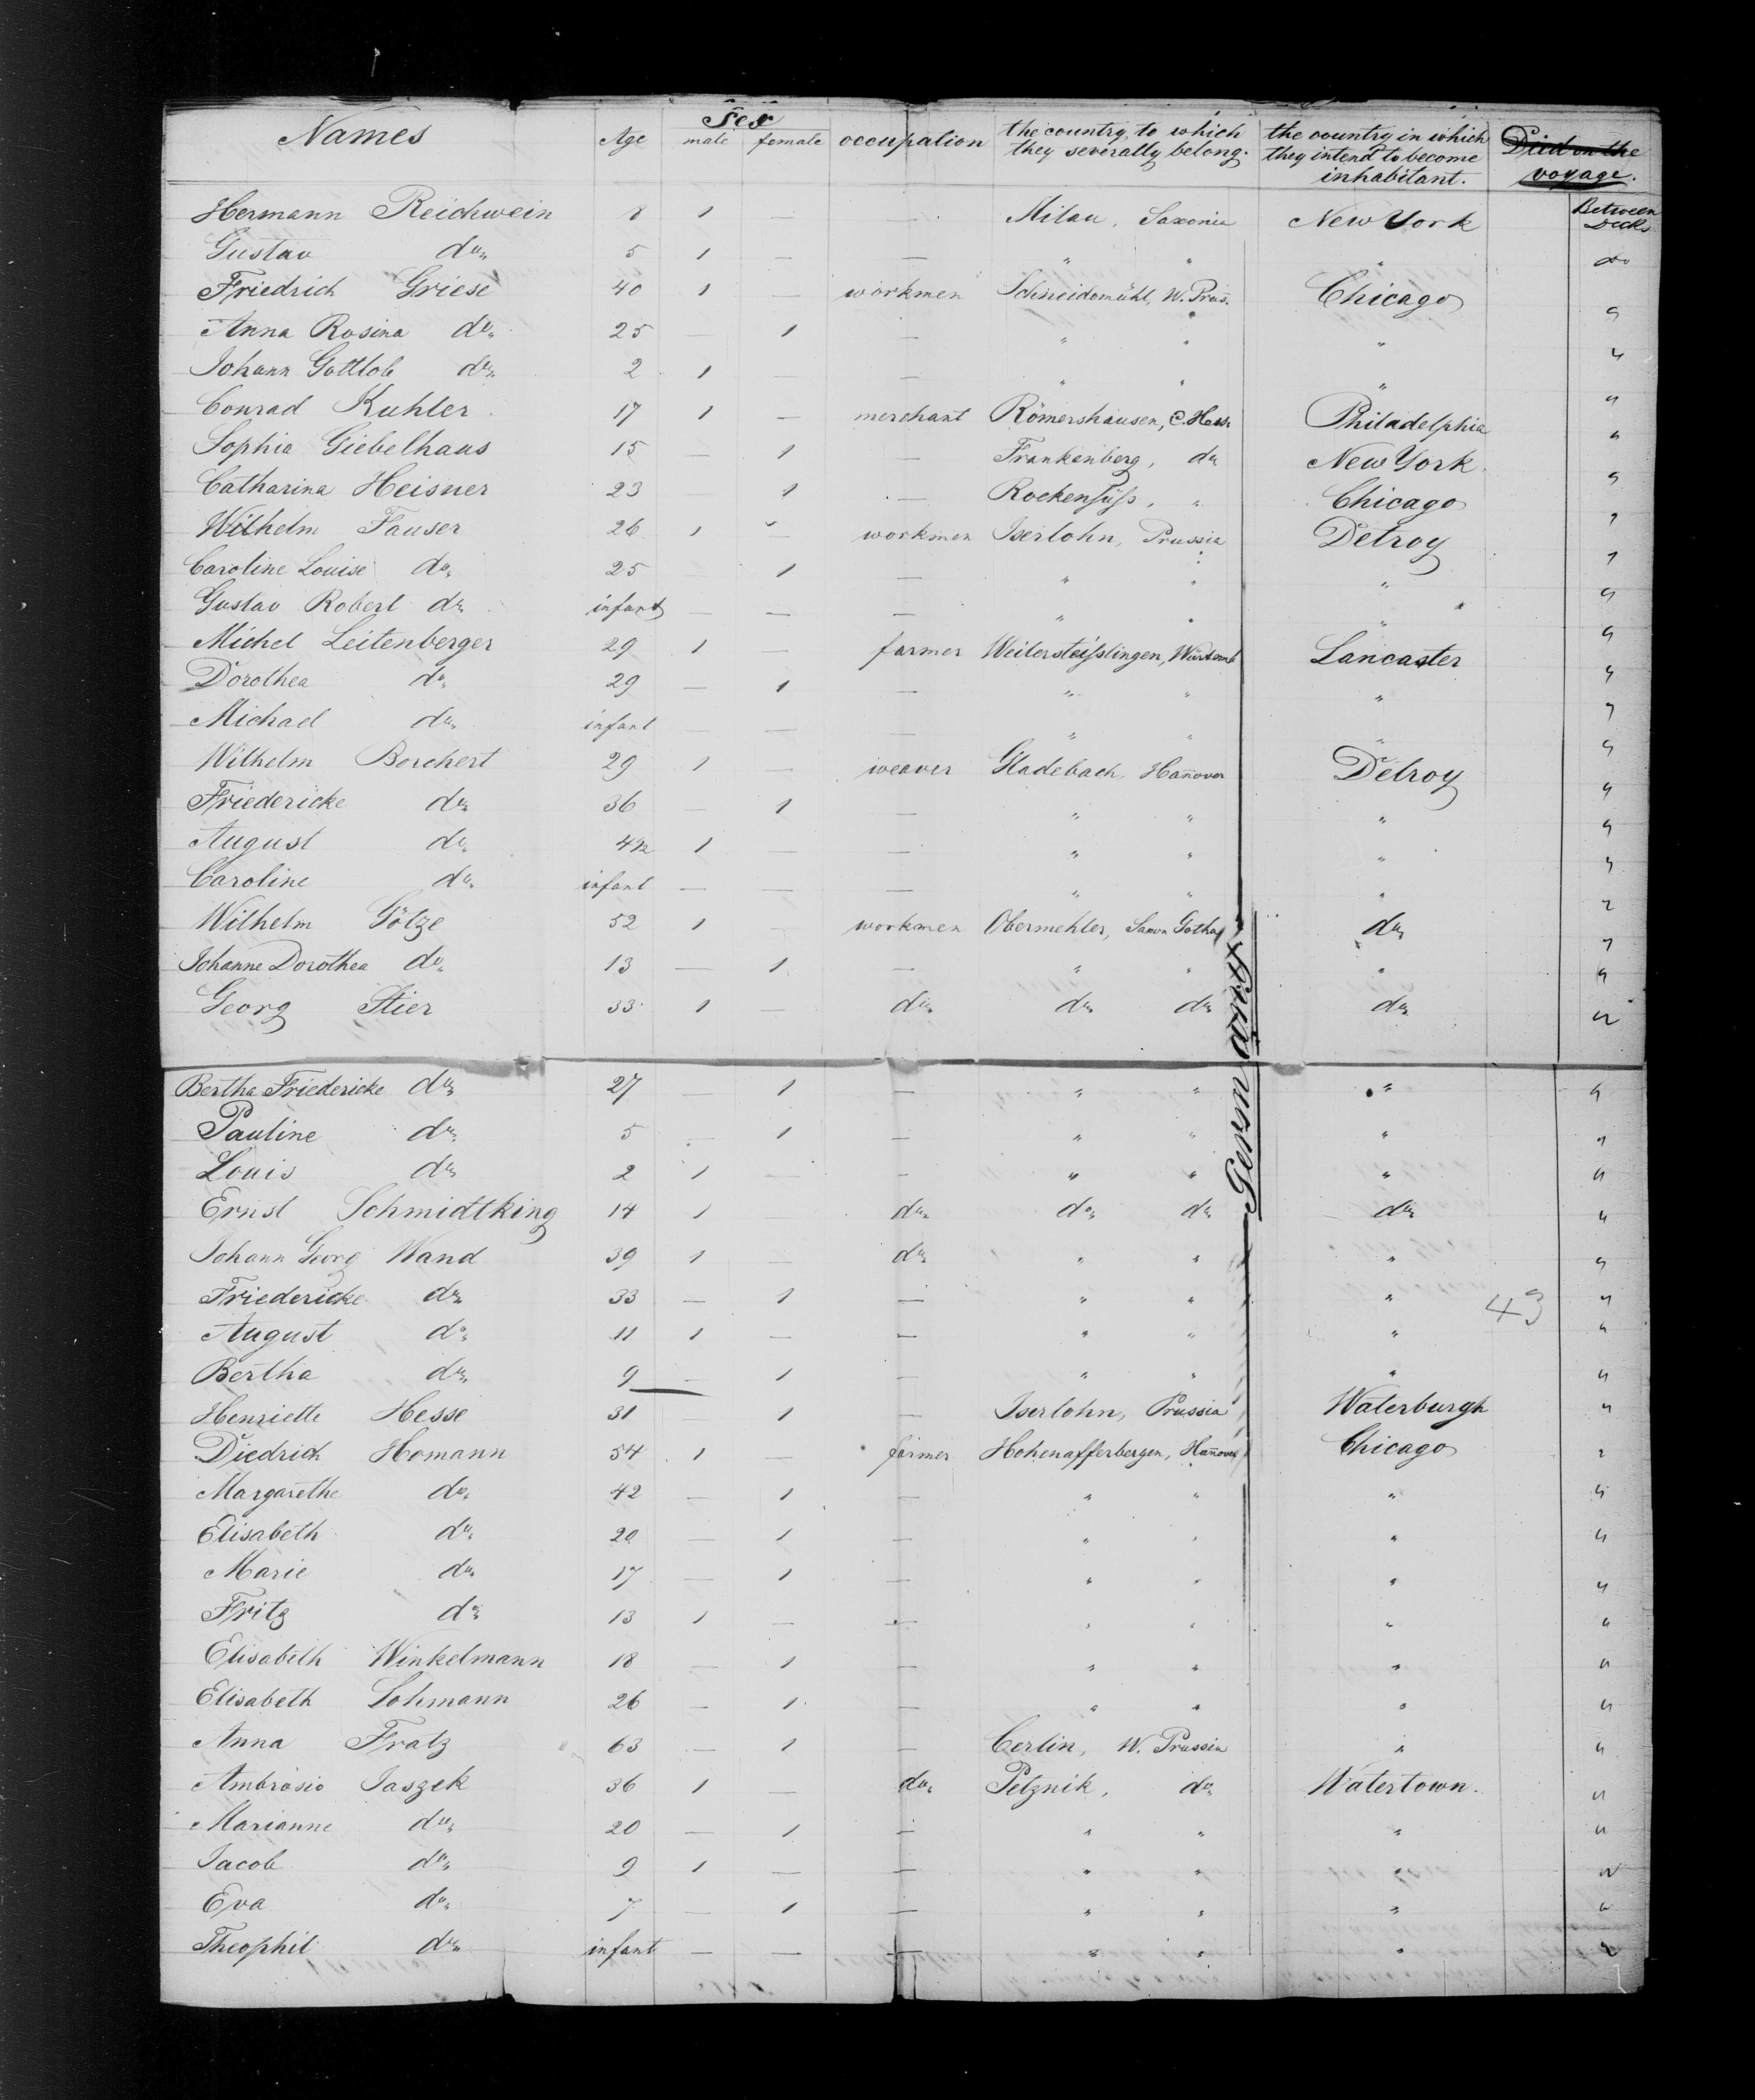 Names Age Sex male female occupation the country, to which they severally belong. the country in which they intend to become inhabitant. Died on the voyage.
Between Decks
Hermann Reichwein 8 1 — — Milau, Saxonia New York
Gustav do 5 1 — — " " " do
Friedrich Griese 40 1 — workmen Schneidemühl, W. Prus. Chicago "
Anna Rosina do 25 — 1 — " " " "
Johann Gottlob do 2 1 — — " " " "
Conrad Kuhler 17 1 — merchant Römershausen, C. Hess. Philadelphia "
Sophia Giebelhaus 15 — 1 — Frankenberg, do New York "
Catharina Heisner 23 1 — Rockensüß, " Chicago "
Wilhelm Fauser 26 1 — workmen Iserlohn, Prussia Detroy "
Caroline Louise do 25 1 — " " " "
Gustav Robert do infant — — — " " " "
Michel Leitenberger 29 1 — farmer Weitersteißlingen, Würtemb Lancaster "
Dorothea do 29 — 1 — " " " "
Michael do infant — — — " " " "
Wilhelm Borchert 29 1 — weaver Gladebach, Hañover Detroy "
Friedericke do 36 — 1 — " " " "
August do 4 1 — — " " " "
Caroline do infant — — — " " " "
Wilhelm Götze 52 1 — workmen Obermehler, Saxon Gotha do "
Johanne Dorothea do 13 — 1 — " " " "
Georg Stier 33 1 — do do do do "
Bertha Friedericke do 27 — 1 — " " " "
Pauline do 5 — 1 — " " " "
Louis do 2 1 — — " " " "
Ernst Schmidtking 14 1 — do do do do "
Johann Georg Wand 39 1 — do " " " "
Friedericke do 33 — 1 — " " " "
43
August do 11 1 — — " " " "
Bertha do 9 — 1 — " " " "
Henriette Hesse 31 1 — Iserlohn, Prussia Waterburgh "
Diedrich Homann 54 1 — farmer Hohenafferbergen, Hañover Chicago "
Margarethe do 42 — 1 — " " " "
Elisabeth do 20 — 1 — " " " "
Marie do 17 — 1 — " " " "
Fritz do 13 1 — — " " " "
Elisabeth Winkelmann 18 — 1 — " " " "
Elisabeth Lohmann 26 — 1 — " " " "
Anna Fratz 63 — 1 — Cerlin, W. Prussia " "
Ambrosio Jaszek 36 1 — do Petznik, do Watertown. "
Marianne do 20 — 1 — " " " "
Jacob do 9 1 — — " " " "
Eva do 7 — 1 — " " " "
Theophil do infant — — — " " " "
Germany